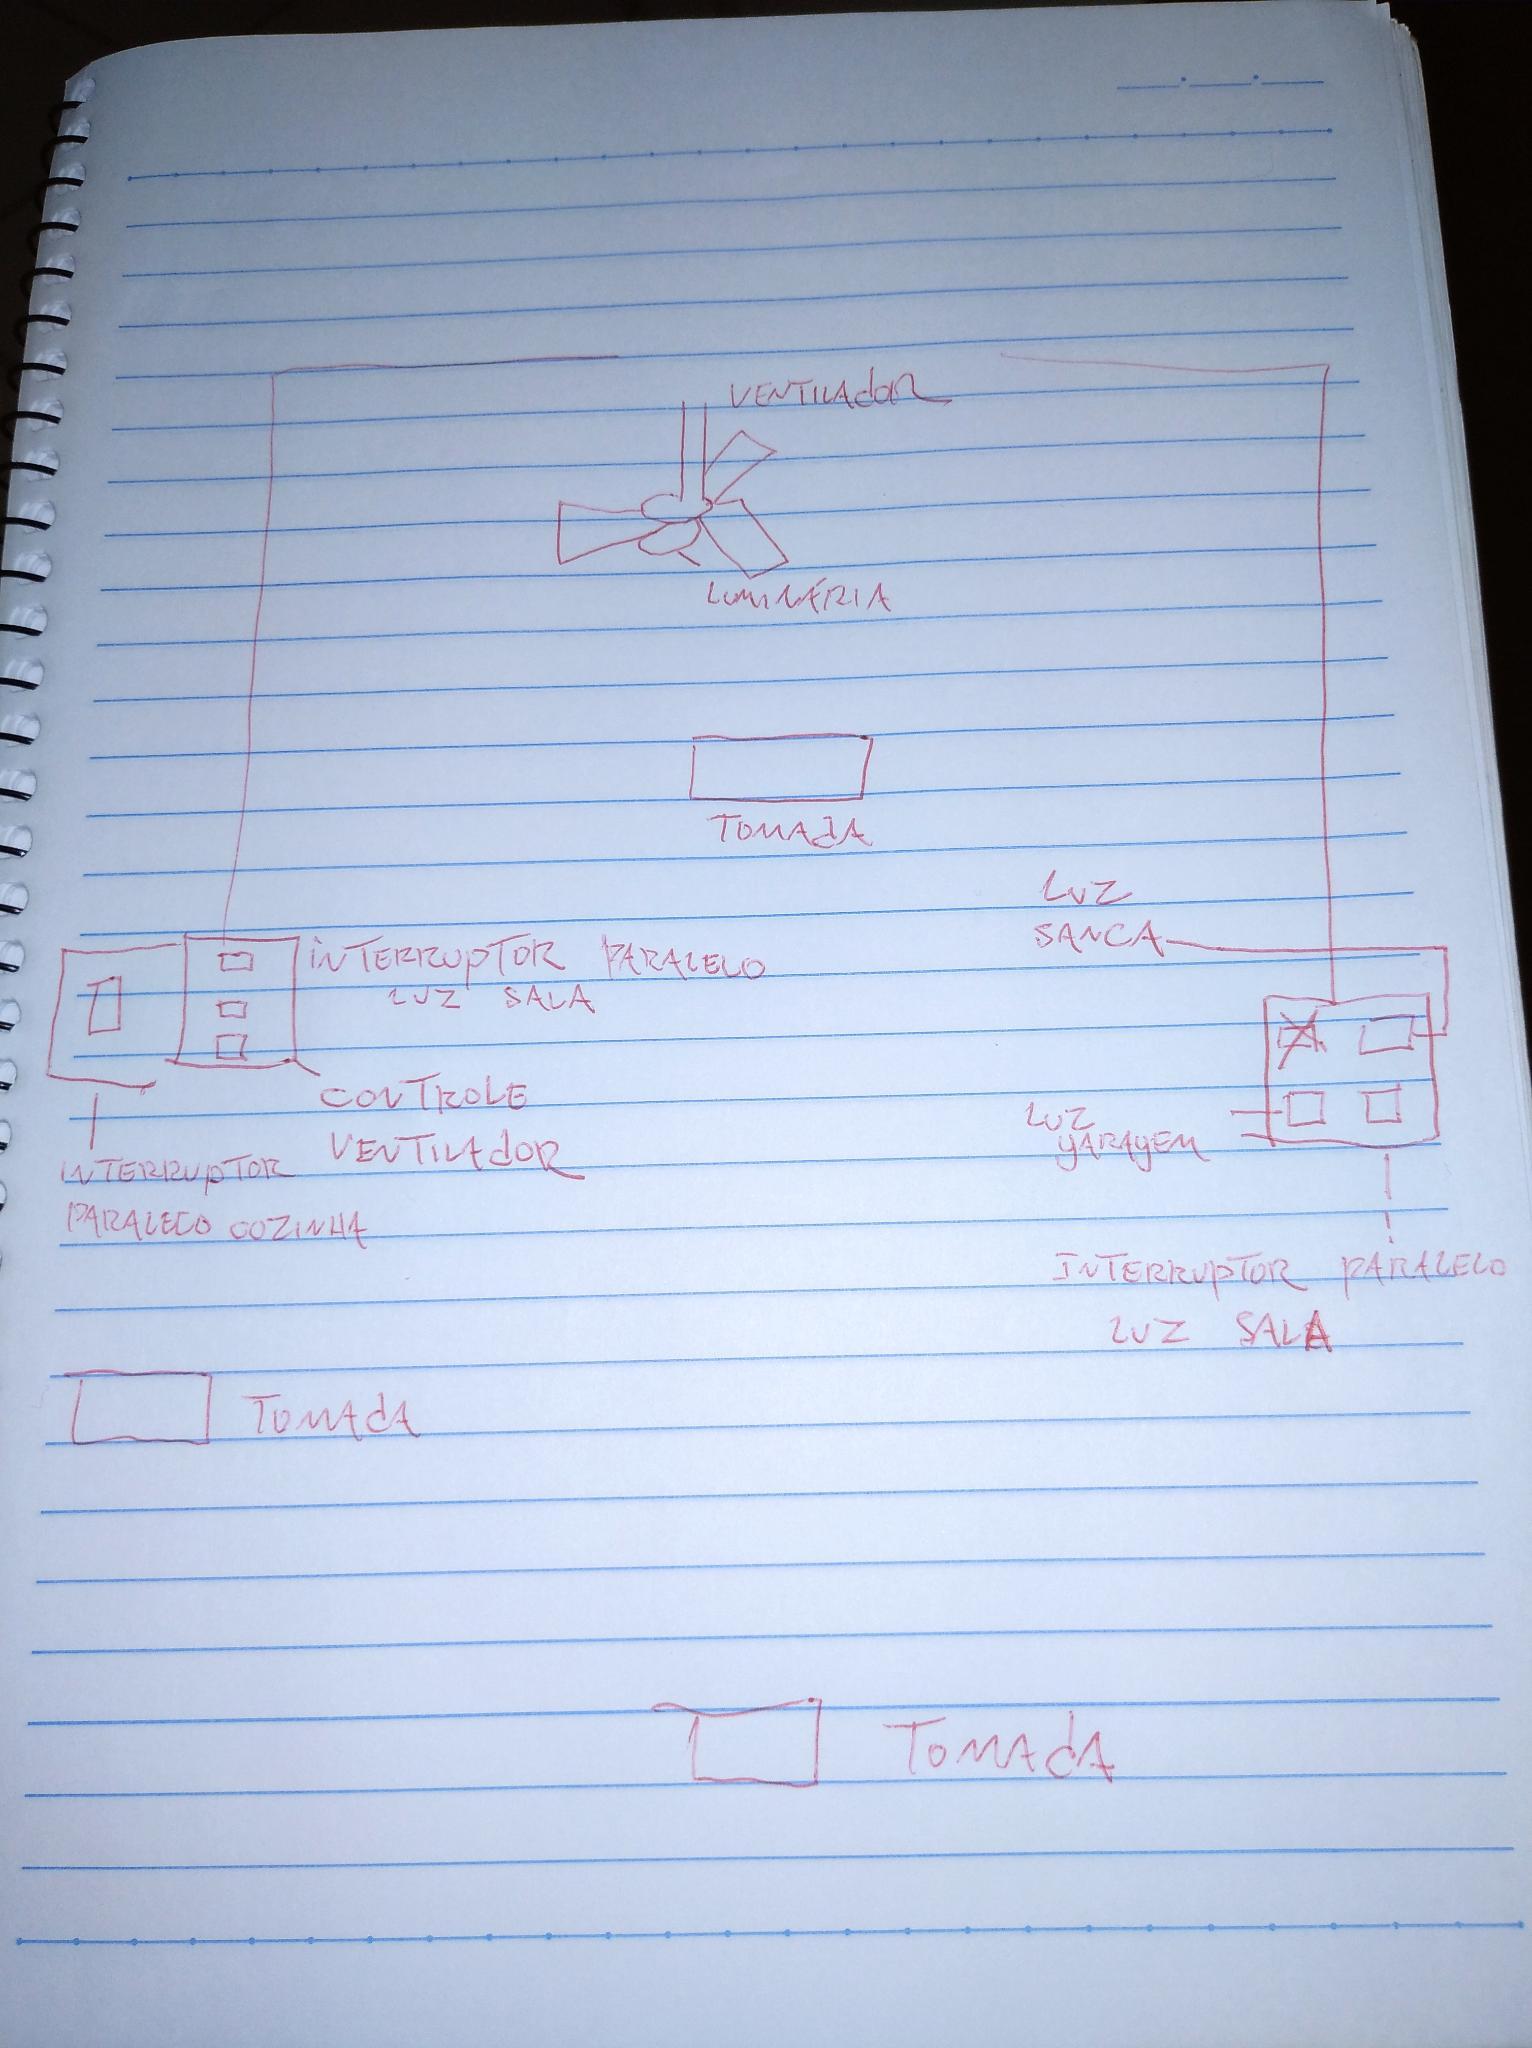 VENTILAdOR
LUMINÁRIA
TOMAdA
LUZ
SANCA
INTERRUPTOR PARALELO
LUZ SALA
CONTROLE
VENTILAdOR
INTERRUPTOR
PARALELO COZINHA
LUZ
GARAGEM
INTERRUPTOR PARALELO
LUZ SALA
TOMAdA
TOMAdA